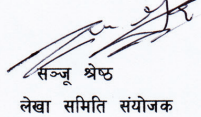 सञ्जू श्रेष्ठ
लेखा समिति संयोजक